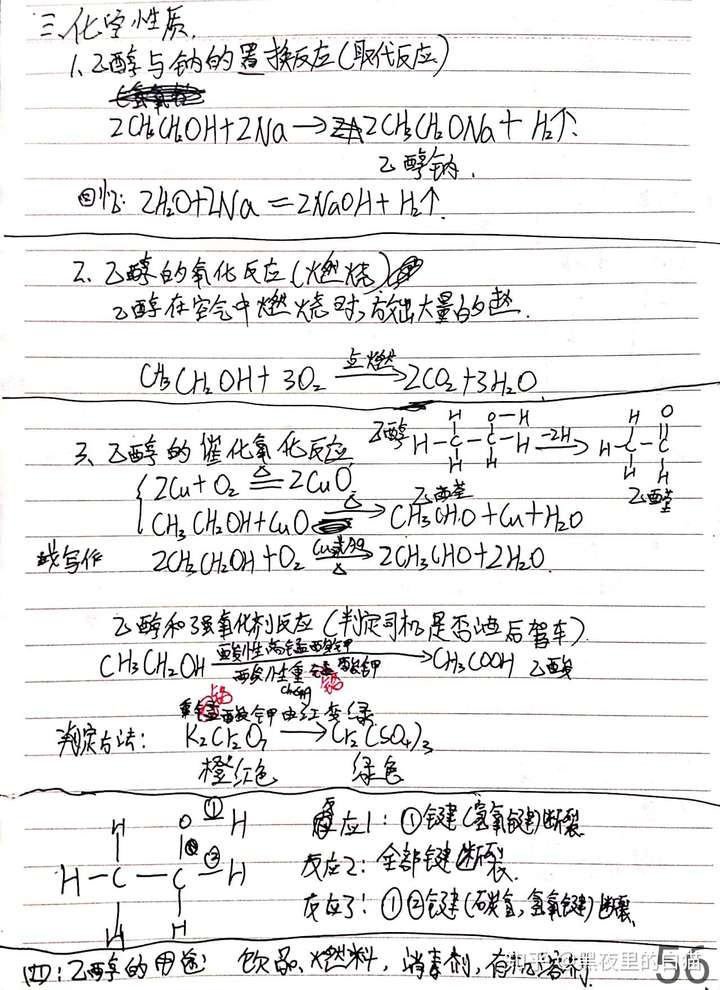 三、化学性质.
1、乙醇与钠的置换反应(取代反应)
2CH3CH2OH+2Na→2CH3CH2ONa+H2↑.
乙醇钠.
回忆: 2H2O+2Na=2NaOH+H2↑.
2、乙醇的氧化反应(燃烧)
乙醇在空气中燃烧时,放出大量的热.
点燃
CH3CH2OH+3O2→2CO2+3H2O
3、乙醇的催化氧化反应
乙醇 H-C-C-H -2H→ H-C-C
H O-H H O
H H H H
乙醛
{ 2Cu+O2 △= 2CuO
CH3CH2OH+CuO △→ CH3CHO+Cu+H2O
或写作 2CH3CH2OH+O2 Cu或Ag △→ 2CH3CHO+2H2O
乙醇和强氧化剂反应(判定司机是否酒后驾车).
酸性高锰酸钾
CH3CH2OH→CH3COOH 乙酸
酸性重铬酸钾
铬
重铬酸钾由红变绿
判定方法: K2Cr2O7→Cr2(SO4)3
橙红色 绿色
H O ① H
H-C-C ② H
H H
反应1: ①键(氢氧键)断裂
反应2: 全部键断裂.
反应3: ①②键(碳氢,氢氧键)断裂
四:乙醇的用途: 饮品、燃料,消毒剂,有机溶剂.
知乎 @黑夜里的白猫
56